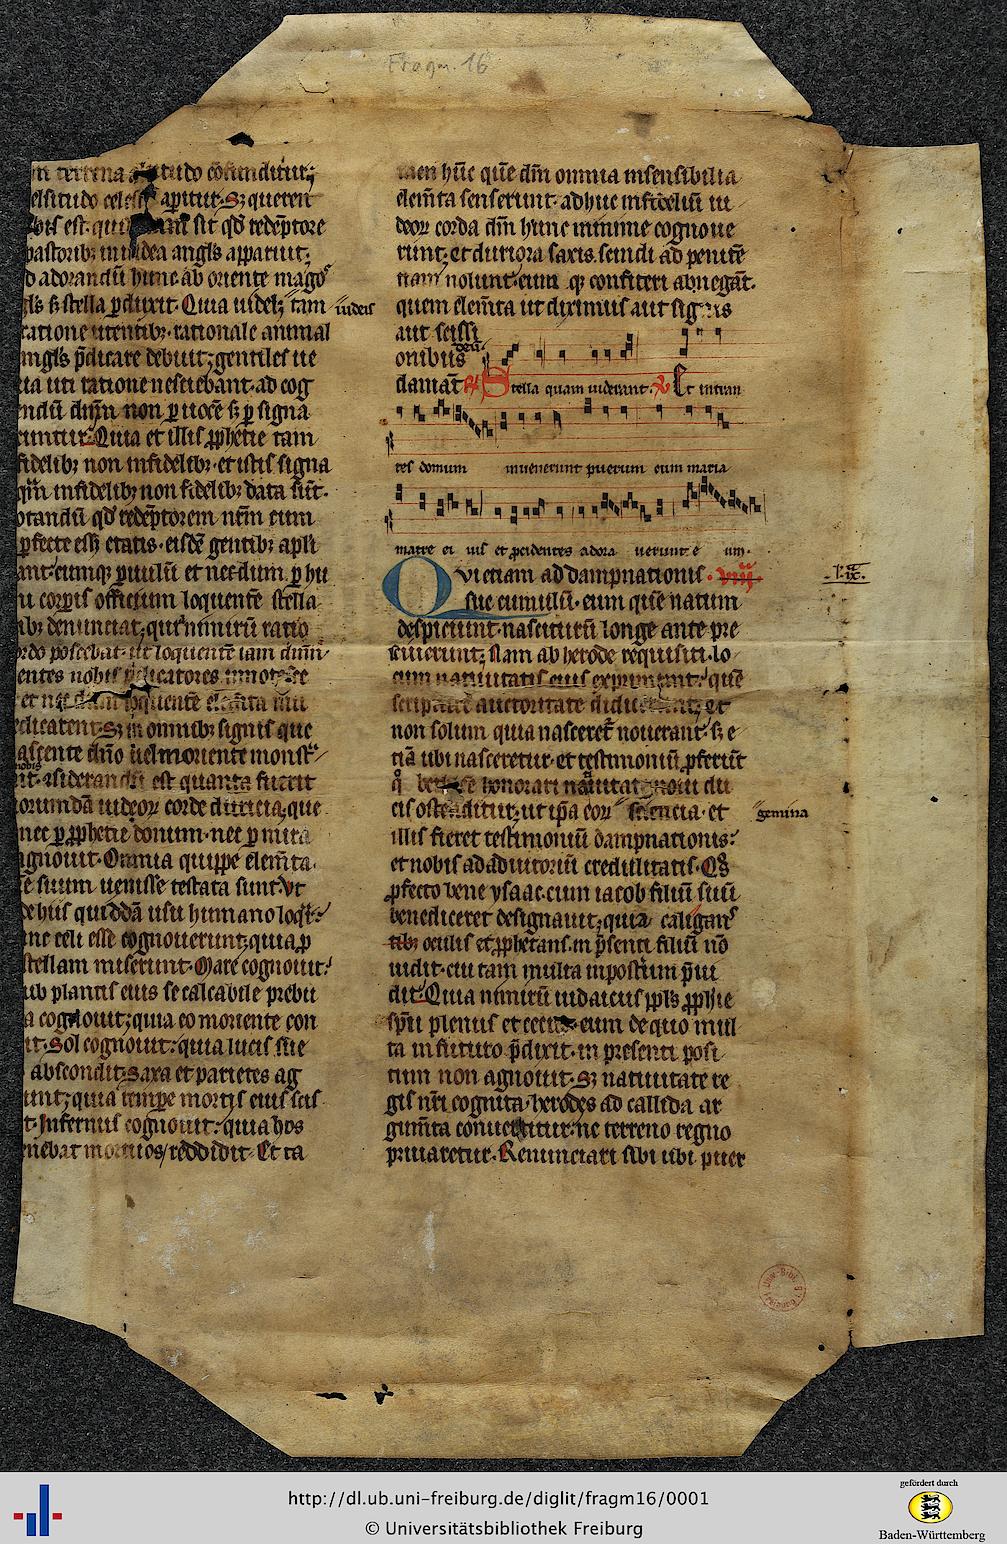 Fragm. 16
terrena cōfunditur;
elsitudo celesti apitur. Sz querend
bis est. qui nam sit qd redēptore
pastorib; in iudea angls apparuit;
d adorandū hunc ab oriente magos
gls sꝫ stella pduxit. Quia uidelꝫ tam iudeis
ratione utentibꝫ. rationale animal
angls p̄dicare debuit; gentiles ue
ia uti ratione nesciebant. ad cog
ndū dn̄m non p uocē sꝫ p signa
cuntur. Quia et illis ꝓphetie tam
fidelibꝫ non infidelibꝫ. et istis signa
qm̄ infidelibꝫ non fidelibꝫ data sūt.
otandū qd redēptorem nrm̄ cum
pfecte eēt etatis. eisdē gentibꝫ apli
ant. cumqꝫ puulū et necdum p hu
ni corpis officium loquentē stella
ibꝫ denunciat; quia nimirū ratio
ordo poscebat. ut loquentē iam dnm̄
entes nobis p̄dicatores innotesce
et nec dum loquentē elem̄ta mu
edicarent. Sꝫ in omnibꝫ signis que
ascente dn̄o uel moriente monstr
nobis
nt. ꝯsiderandū est quanta fuerit
iorundā iudeoꝝ corde duricia; que
nec p ꝓphetie donum. nec p mira
agnouit. Omnia quippe elem̄ta
ē suum uenisse testata sunt. Vt
de hiis quiddā usu humano loqr.
nc celi esse cognouerunt; quia p
stellam miserunt. Mare cognouit.
ub plantis eius se calcabile prebu
a cognouit; quia eo moriente con
it. Sol cognouit: quia lucis sue
abscondit. Saxa et parietes ag
unt; quia tempe mortis eius scis
t. Infernus cognouit: quia hos
nebat mortuos, reddidit. Et ta
men hūc quē dn̄m omnia insensibilia
elem̄ta senserunt. adhuc infideliū iu
deoꝝ corda dm̄ hunc minime cognoue
runt; et duriora saxis. scindi ad penitē
tiam nolunt. eum qꝫ confiteri abnegāt.
quem elem̄ta ut diximus aut signis
aut scissi
onibus deū
clamāt ℟ Stella quam uiderant. ℣ Et intran
tes domum inuenerunt puerum cum maria
matre ei us et ꝓcidentes adora uerunt e um.
Qvi etiam ad dampnationis . viiij
l. ix.
sue cumulū. eum quē natum
despiciunt. nasciturū longe ante pre
sciuerunt; Nam ab herode requisiti. lo
cum natiuitatis eius exprimunt; quē
scripture auctoritate didicerant; et
non solum quia nasceretr̄ nouerant. sꝫ e
tiā ubi nasceretur. et testimoniū pferūt
q bethleē honorari natiuitate noui du
cis ostenditur; ut ip̄a eoꝝ sciencia. et gemina
illis fieret testimoniū dampnationis.
et nobis ad adiutoriū credulitatis. Qs
pfecto bene ysaac. cum iacob filiū suū
benediceret designauit; quia caligans
tibꝫ oculis et ꝓphetans. in p̄senti filiū nō
uidit. cui tam multa inposterum p̄ui
dit. Quia nimirū iudaicus ppls ꝓphie
sp̄u plenus et cecus. eum de quo mul
ta in futuro p̄dixit. in presenti posi
tum non agnouit. Sꝫ natiuitate re
gis nr̄i cognita. herodes ad callida ar
gum̄ta conuertitur. ne terreno regno
priuaretur. Renunciari sibi ubi puer
http://dl.ub.uni-freiburg.de/diglit/fragm16/0001
© Universitätsbibliothek Freiburg
gefördert durch
Baden-Württemberg